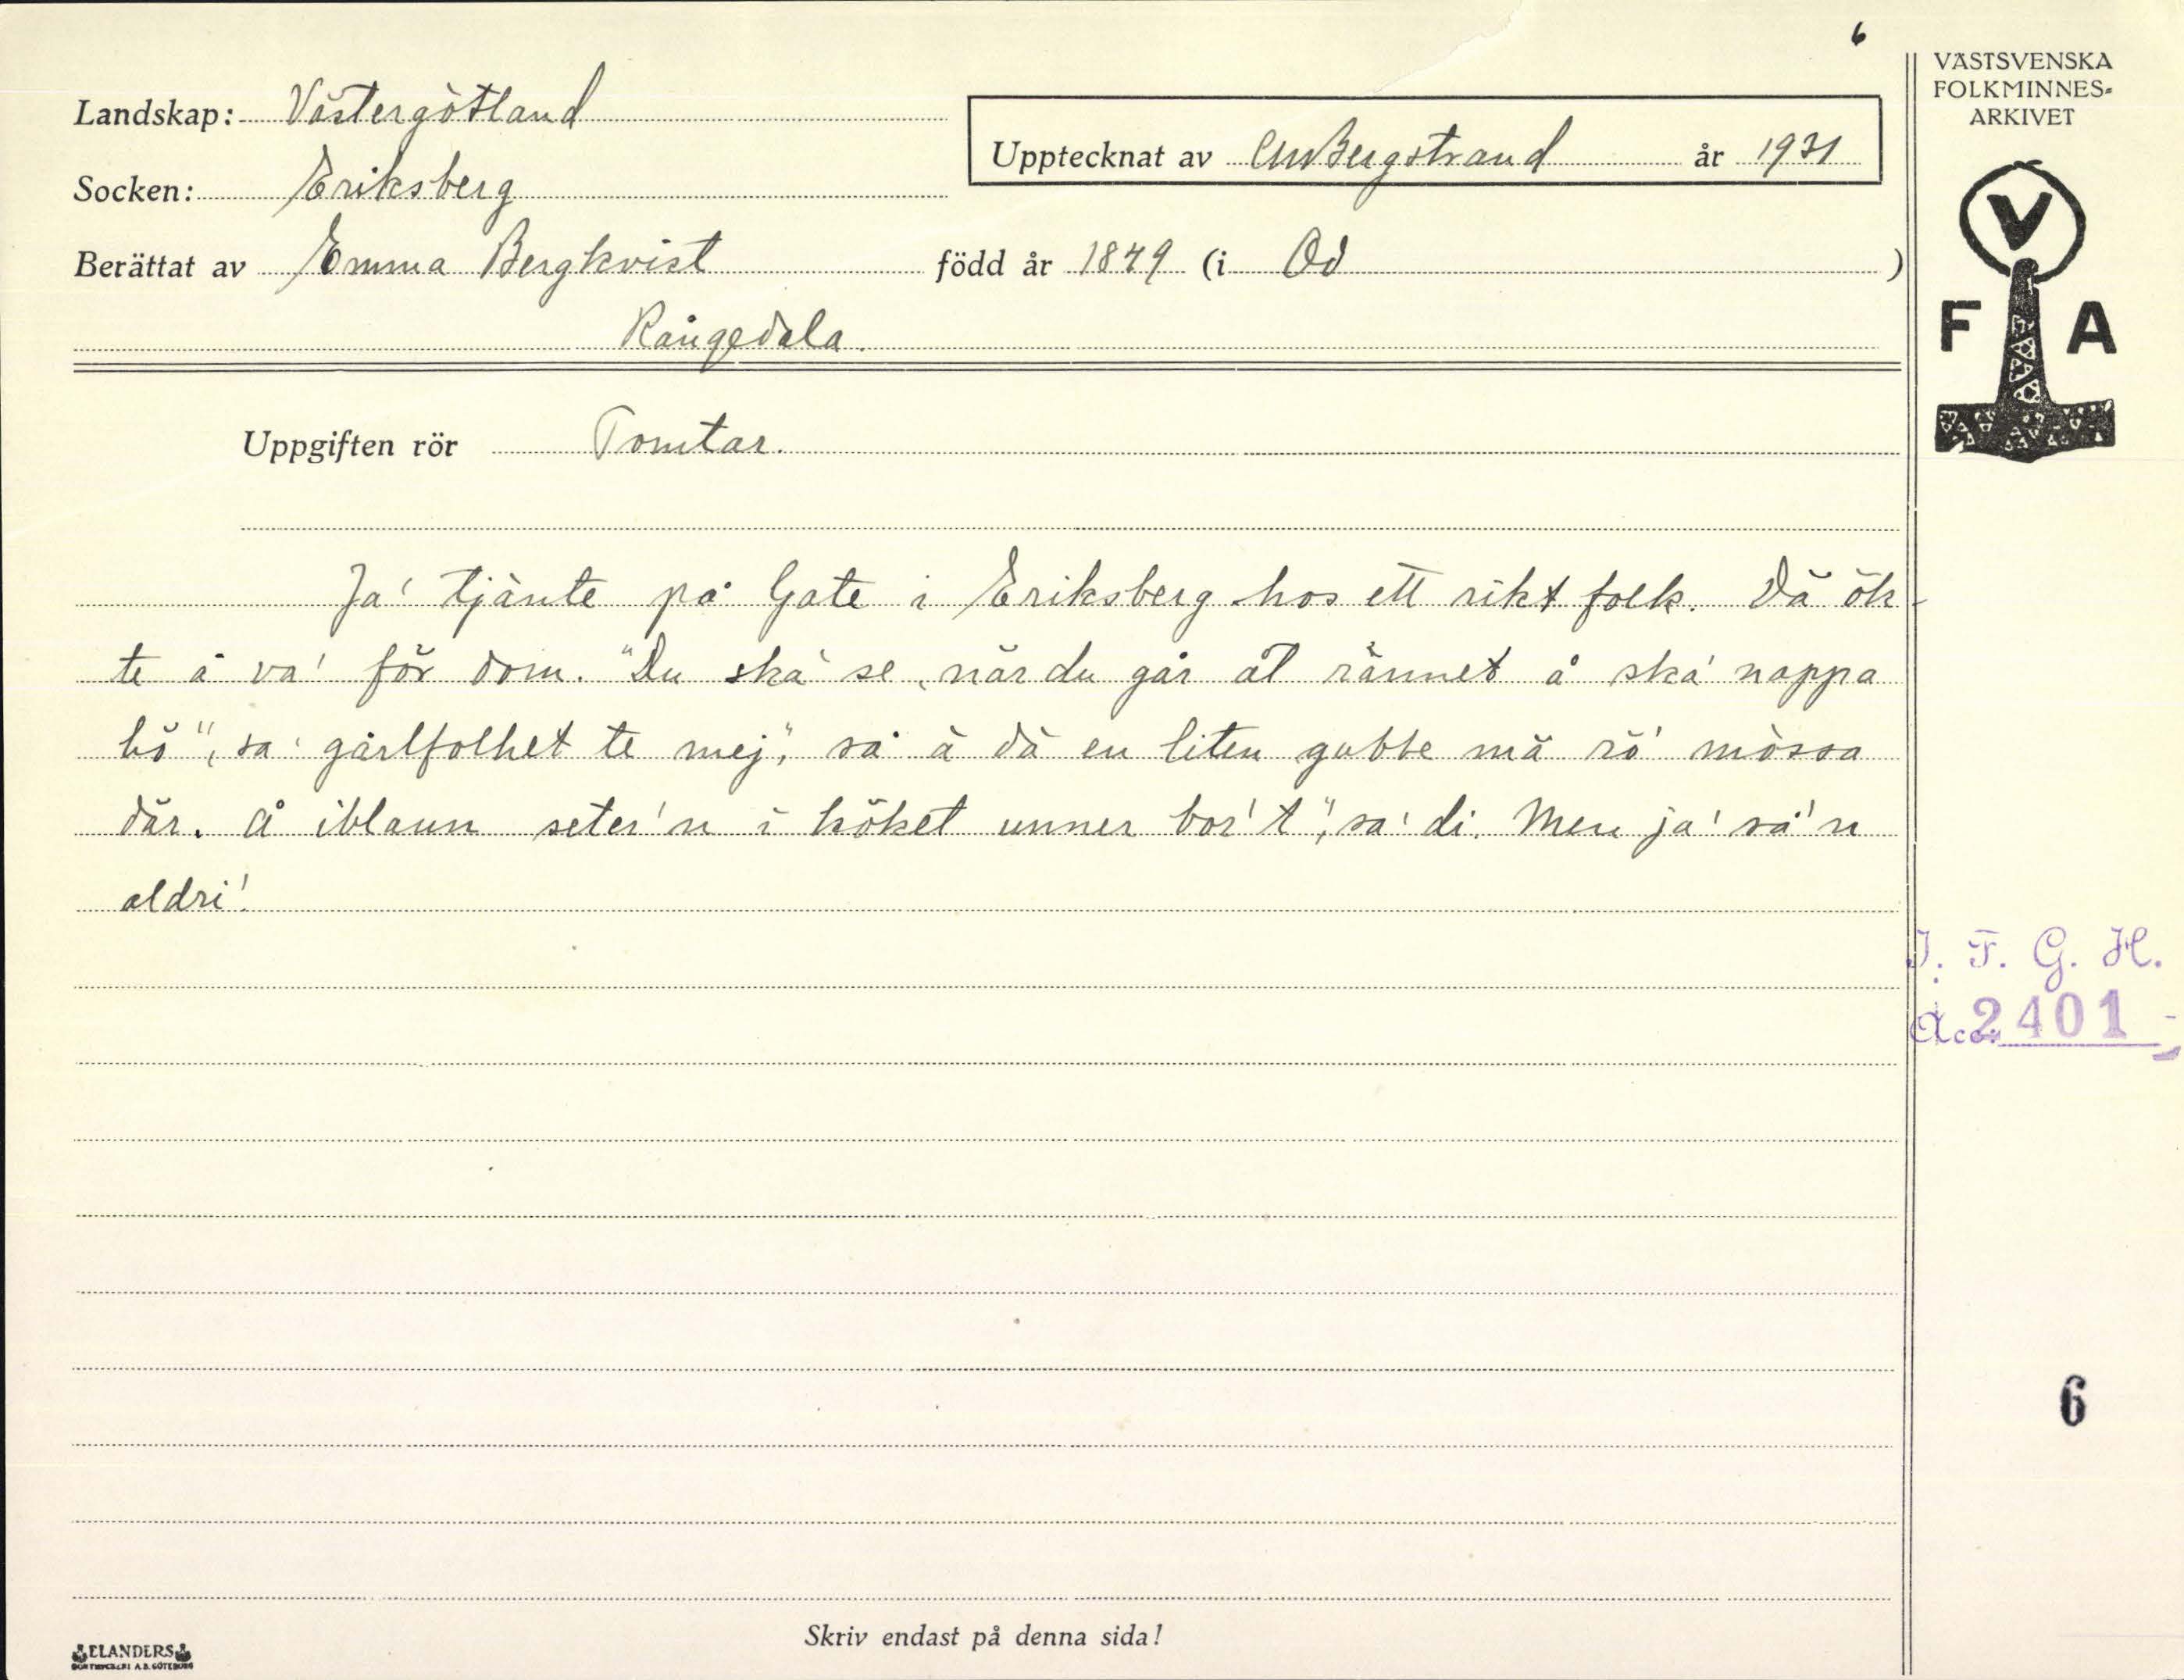 6
VÄSTSVENSKA
FOLKMINNES-
ARKIVET
Landskap: Västergötland
Upptecknat av CMBergstrand år 1931
Socken: Eriksberg
Berättat av Emma Bergkvist född år 1849 (i Od )
Rångedala.
V
F A
Uppgiften rör Tomtar.
Ja' tjänte på Gate i Eriksberg hos ett rikt folk. Dä ök-
te å va' för dom. "Du ska' se, när du går åt rännet å ska' nappa
hö", sa' gårlfolket te mej", så ä dä en liten gubbe mä rö' mössa
där. Å iblann seter'n i köket unner bor't", sa' di. Men ja' så'n
aldri'.
I. F. G. H.
Acc. 2401
6
Skriv endast på denna sida!
ELANDERS
BOKTRYCKERI A.B. GÖTEBORG